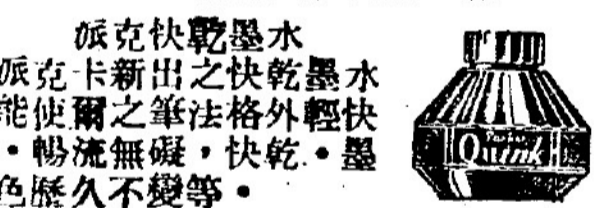 派克快乾墨水
派克卡新出之快乾墨水
能使爾之筆法格外輕快
・暢流無礙，快乾・墨
色歷久不變等・
Parker
Quink